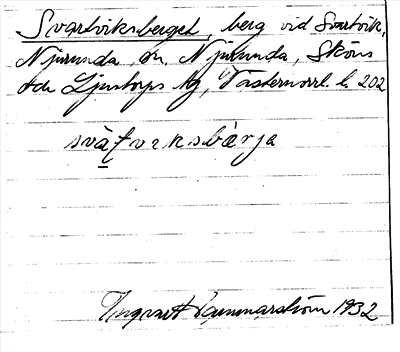 Svartviksberget, berg vid Svartvik,
Njurunda sn, Njurunda, Sköns
och Ljustorps tg, Västernorrl. l. 202
svàṭviksbàrja
Ingvar Hammarström 1932